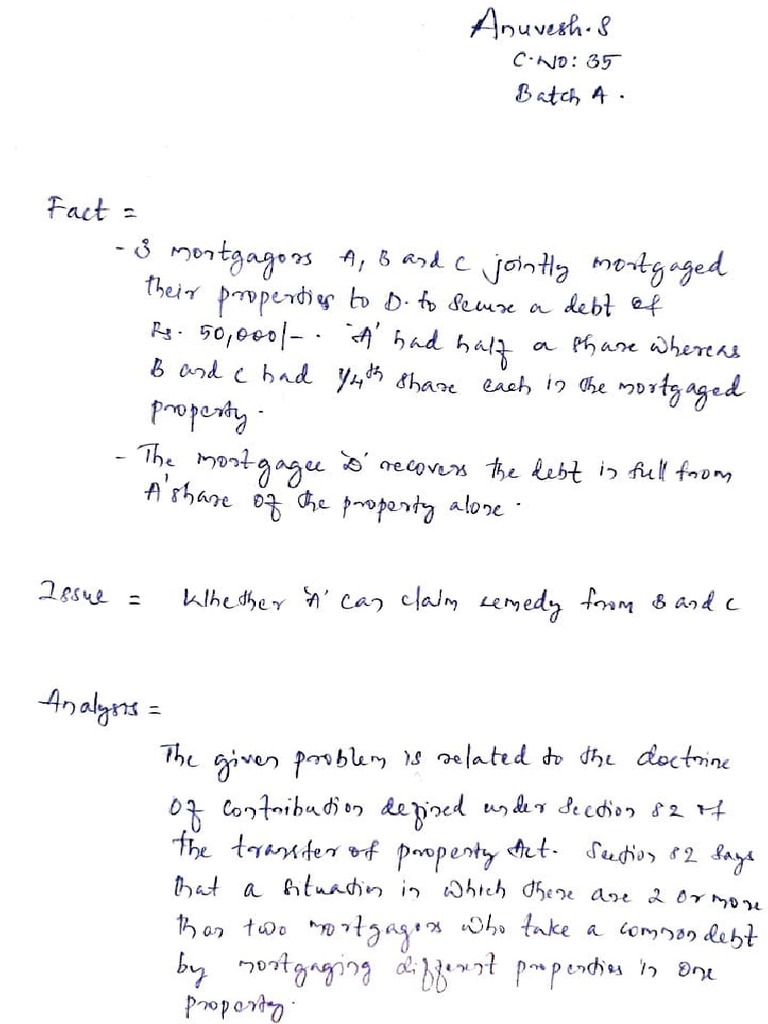 Anuvesh.S
C.NO: 35
Batch A.
Fact =
- 3 mortgagors A, B and C jointly mortgaged
their properties to D. to secure a debt of
Rs. 50,000/- . 'A' had half a share whereas
B and C had 1/4th share each in the mortgaged
property.
- The mortgagee 'D' recovers the debt in full from
A'share of the property alone.
Issue = Whether 'A' can claim remedy from B and C
Analysis =
The given problem is related to the doctrine
of contribution defined under Section 82 of
the transfer of property Act. Section 82 Says
that a situation in which there are 2 or more
than two mortgagors who take a common debt
by mortgaging different properties in one
property.